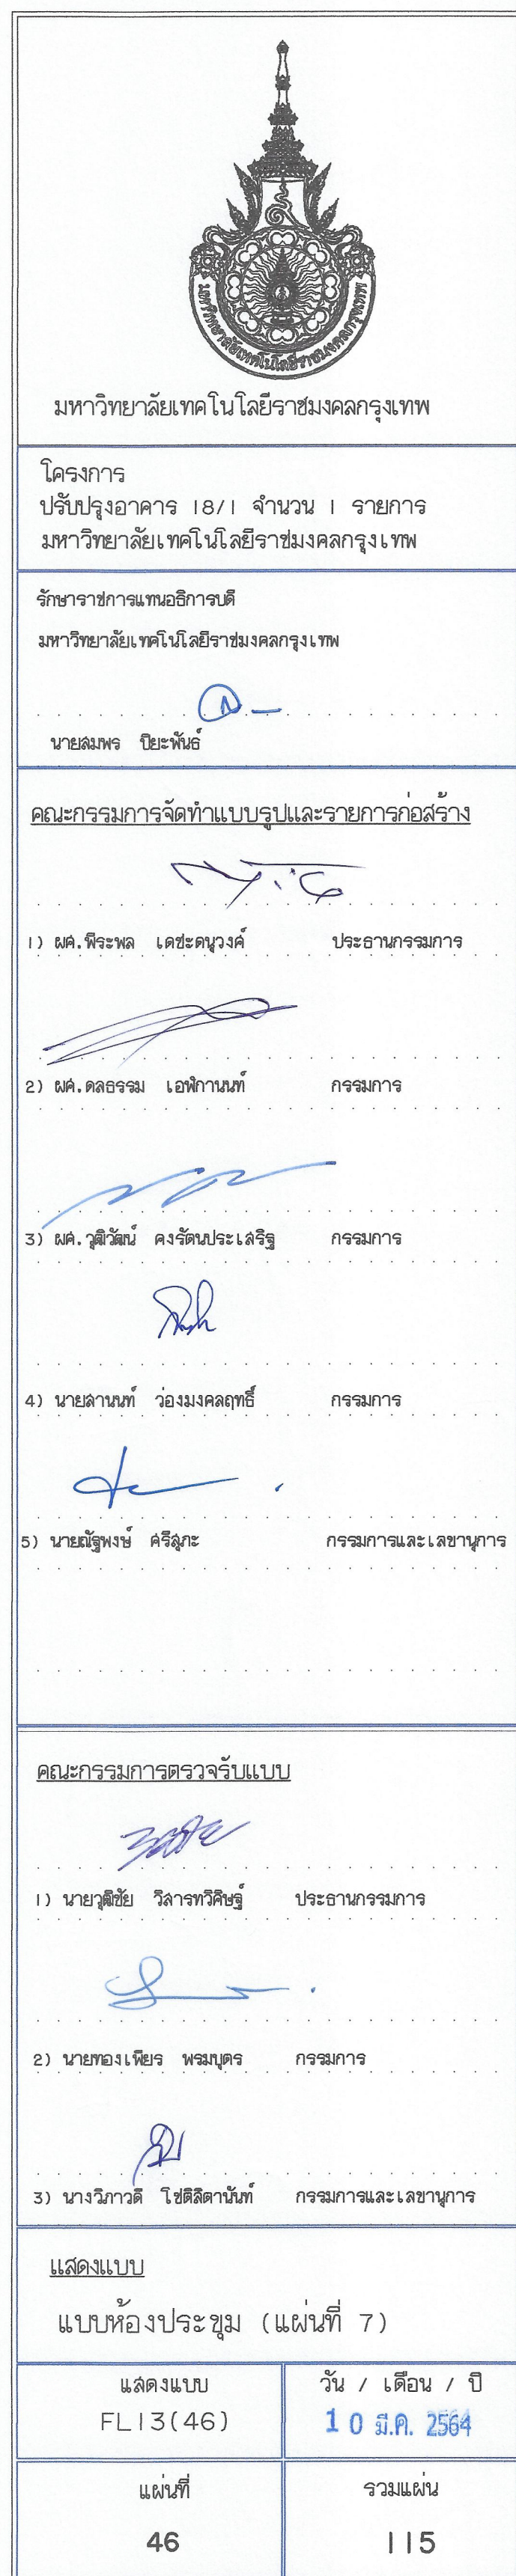 มหาวิทยาลัยเทคโนโลยีราชมงคลกรุงเทพ
มหาวิทยาลัยเทคโนโลยีราชมงคลกรุงเทพ
โครงการ
ปรับปรุงอาคาร 18/1 จำนวน 1 รายการ
มหาวิทยาลัยเทคโนโลยีราชมงคลกรุงเทพ
รักษาราชการแทนอธิการบดี
มหาวิทยาลัยเทคโนโลยีราชมงคลกรุงเทพ
นายสมพร ปิยะพันธ์
คณะกรรมการจัดทำแบบรูปและรายการก่อสร้าง
1) ผศ.พีระพล เดชะดนุวงค์ ประธานกรรมการ
2) ผศ.ดลธรรม เอฬกานนท์ กรรมการ
3) ผศ.วุฒิวัฒน์ คงรัตนประเสริฐ กรรมการ
4) นายสานนท์ ว่องมงคลฤทธิ์ กรรมการ
5) นายณัฐพงษ์ ศรีสุภะ กรรมการและเลขานุการ
คณะกรรมการตรวจรับแบบ
1) นายวุฒิชัย วิสารทวิศิษฐ์ ประธานกรรมการ
2) นายทองเพียร พรมบุตร กรรมการ
3) นางวิภาวดี โชติลิตานันท์ กรรมการและเลขานุการ
แสดงแบบ
แบบห้องประชุม (แผ่นที่ 7)
แสดงแบบ วัน / เดือน / ปี
FL13(46) 10 มี.ค. 2564
แผ่นที่ รวมแผ่น
46 115